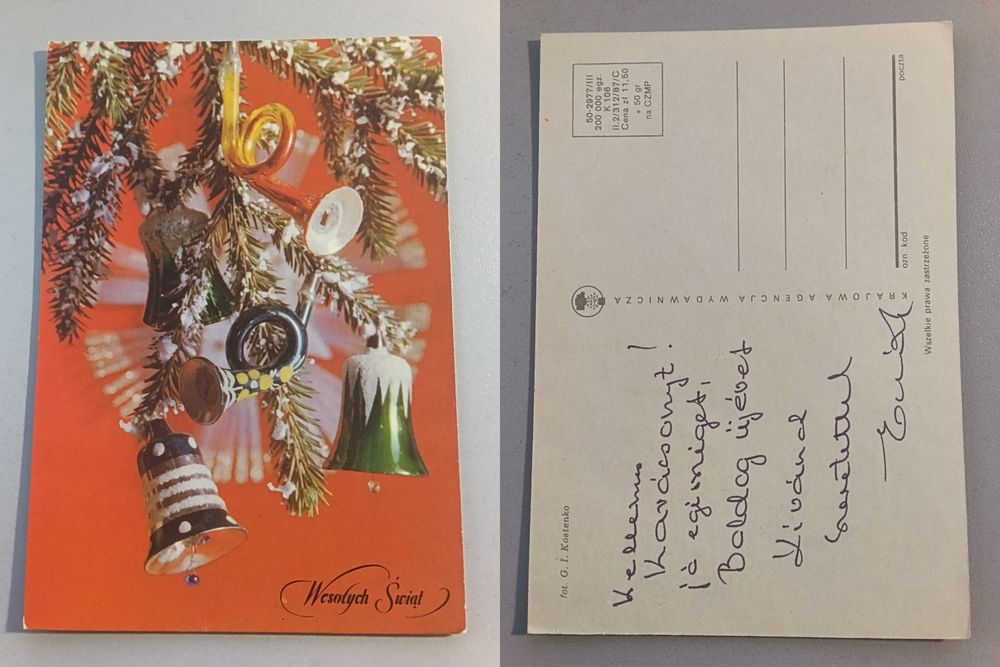 Wesołych Świąt
50-2977/III
200 000 egz.
K 106
II.2/312/87/C
Cena zł 11,50
+ 50 gr
na CZMP
poczta
ozn. kod.
KRAJOWA AGENCJA WYDAWNICZA
Wszelkie prawa zastrzeżone
fot. G. I. Kostenko
Kellemes
Karácsonyt!
jó egészséget,
Boldog újévet
Kívánok
szeretettel